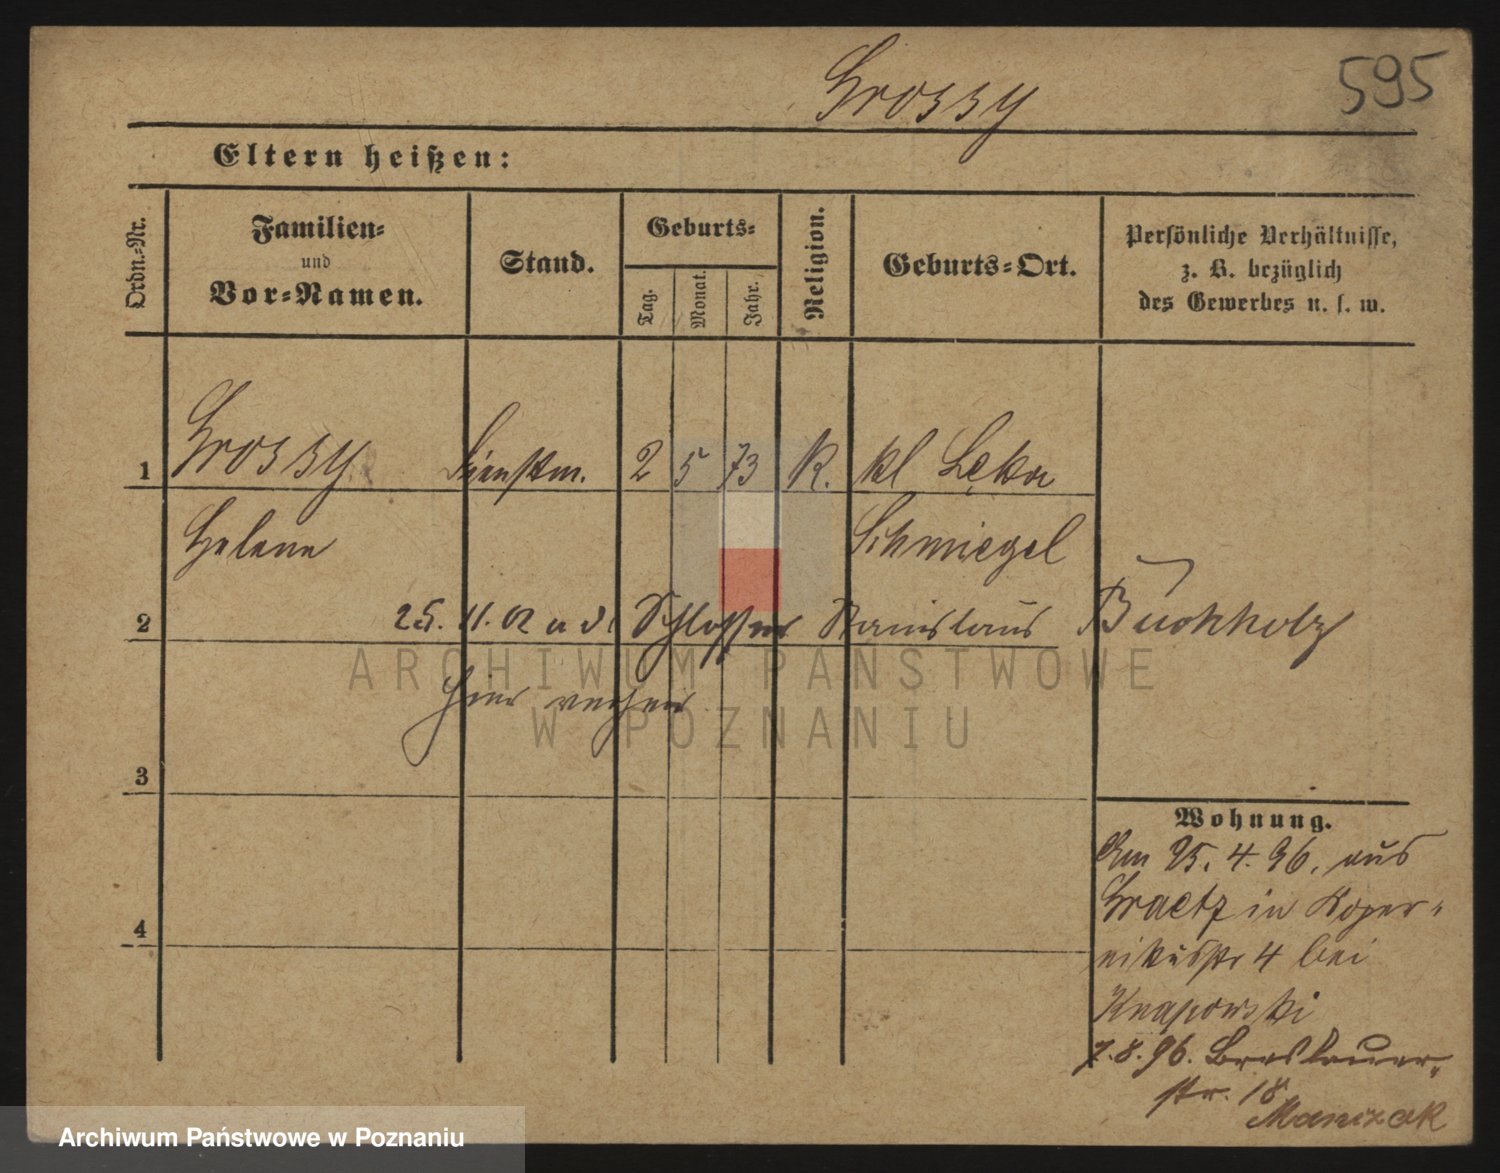 Grossy
595
Eltern heißen:
Ordn.-Nr.
Familien-
und
Vor-Namen.
Stand.
Geburts-
Tag.
Monat.
Jahr.
Religion.
Geburts-Ort.
Persönliche Verhältnisse,
z. B. bezüglich
des Gewerbes u. s. w.
1 Grossy Dienstm. 2 5 73 K. kl Lęka
Helene Schmiegel
2 25. 11. 02 a d Schlosser Stanislaus Buchholz
hier verheir
3
4
Wohnung.
Am 25. 4. 96. aus
Graetz in Koper-
nikusstr 4 bei
Knapowski
7. 8. 96. Breslauer-
str. 18
Manczak
ARCHIWUM PAŃSTWOWE
W POZNANIU
Archiwum Państwowe w Poznaniu